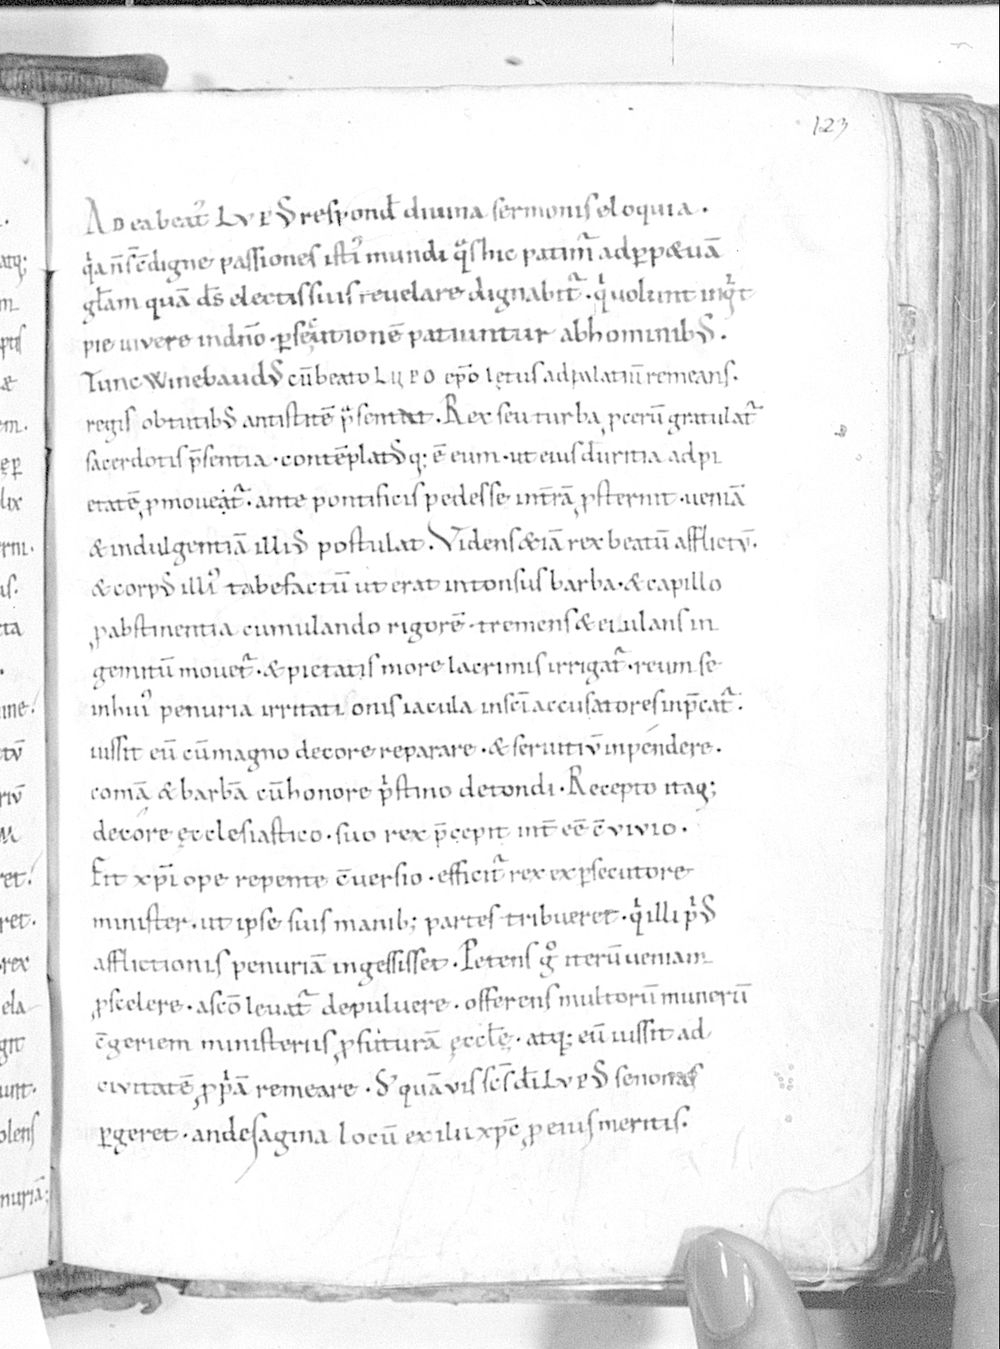 123
Ad ea beat᾿ LVPVS respond̄ diuina sermonis eloquia.
q̇a n̄ s̄ c̄digne passiones isti᾿ mundi q̊s hic patim᷑ ad ꝑpetuā
gl̄am quā d̄s electis suis reuelare dignabit᷑. q̇ uolunt inq̇t
pie uiuere in dn̄o. ꝑsecutionē patiuntur ab hominibus.
Tunc Winebaudus cū beato LUPO ep̄o lętus ad palatiū remeans.
regis obtutibus antistitē p̄sentat. Rex seu turba ꝓcerū gratulat᷑
sacerdotis p̄sentia. contēplatusq; ē eum. ut eius duritia ad pi
etatē ꝓmoueat᷑. ante pontificis pedes se int̄rā ꝓsternit. ueniā
& indulgentiā illius postulat. Videns & iā rex beatū afflictū.
& corpus illi᾿ tabefactū ut erat intonsus barba. & capillo
ꝓ abstinentia cumulando rigorē. tremens & eiulans in
gemitū mouet᷑. & pietatis more lacrimis irrigat᷑. reum se
in hui᾿ penuria irritationis iacula in sc̄i accusatores inp̄cat᷑.
iussit eū cū magno decore reparare. & seruitiū inpendere.
comā & barbā cū honore ṗstino detondi. Recepto itaq;
decore ęcclesiastico. suo rex p̄cepit int̄ee c̄uiuio.
Fit xp̄i ope repente c̄uersio. efficit᷑ rex ex ꝑsecutore
minister. ut ipse suis manib; partes tribueret. q̇ illi ṗus
afflictionis penuriā ingessisset. Petens g̊ iterū ueniam
ꝓ scelere. a sc̄o leuat᷑ de puluere. offerens multorū munerū
c̄geriem ministeriis ꝓfuturā ęccl̄ę. atq; eū iussit ad
ciuitatē ꝓṗā remeare. S; quāuis sc̄s d̄i LVPVS senonas
ꝑgeret. andesagina locū exilii xp̄c ꝓ eius meritis.